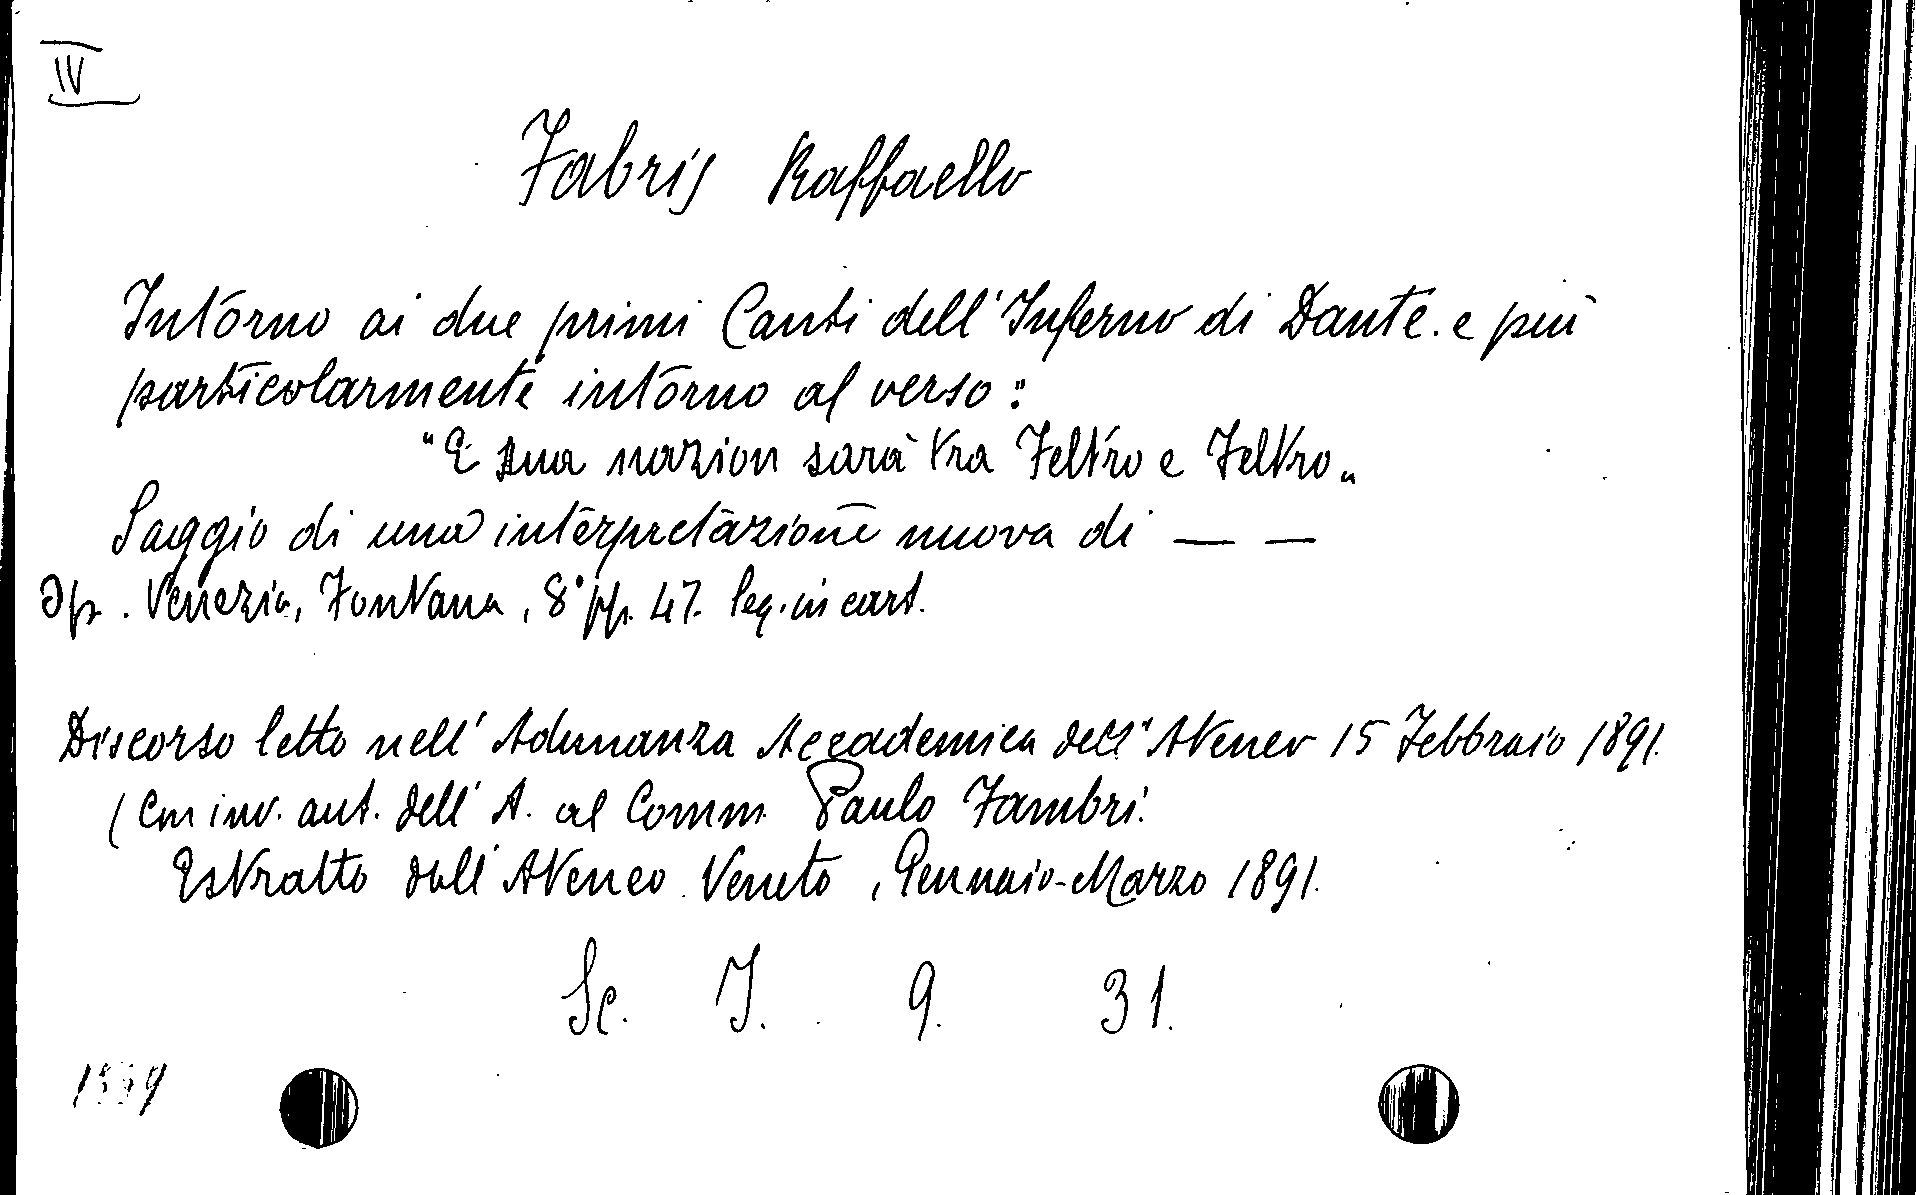 IV
Fabris Raffaello
Intorno ai due primi Canti dell'Inferno di Dante. e più
particolarmente intorno al verso:
"E sua nazion sarà tra Feltro e Feltro"
Saggio di una interpretazione nuova di — —
Op. Venezia, Fontana, 8° pp. 47. leg. in cart.
Discorso letto nell'Adunanza Accademica dell'Ateneo 15 Febbraio 1891.
(Con inv. aut. dell'A. al Comm. Paulo Fambri.
Estratto dall'Ateneo Veneto, Gennaio-Marzo 1891.
Sc. I. 9. 31.